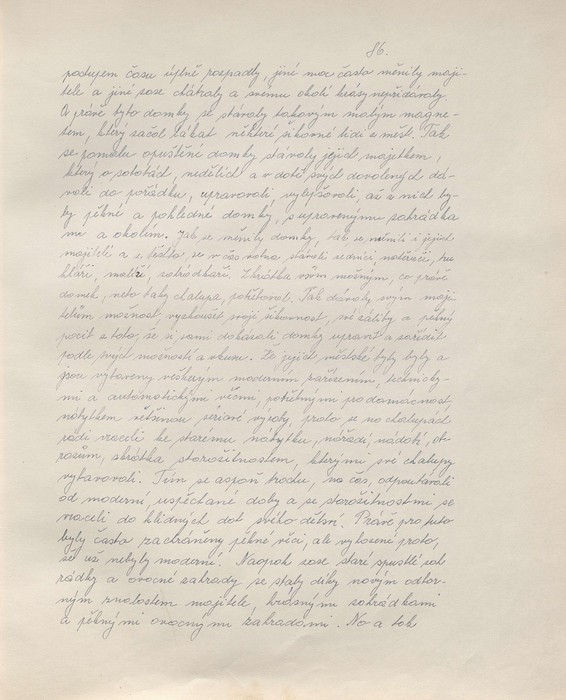 86.
postupem času úplně rozpadly, jiné moc často měnily maji-
tele a jiné zase chátraly a svému okolí krásy nepřidávaly.
A právě tyto domky se stávaly takovým malým magne-
tem, který začal lákat některé šikovné lidi z měst. Tak
se pomalu opuštěné domky stávaly jejich majetkem,
který o sobotách, nedělích a v době svých dovolených dá-
vali do pořádku, upravovali, vylepšovali, až z nich by-
ly pěkné a pohledné domky, s upravenými zahrádka
mi a okolím. Jak se měnily domky, tak se měnili i jejich
majitelé a z těchto se v čas volna stávali zedníci, natěrači, tru
hláři, malíři, zahrádkáři. Zkrátka vším možným, co právě
domek, nebo taky chalupa, potřeboval. Tak dávaly svým maji-
telům možnost vyzkoušet svoji šikovnost, své záliby a pěkný
pocit z toho, že si sami dokázali domky upravit a zařídit
podle svých možností a vkusu. Že jejich městské byty byly a
jsou vybaveny veškerým moderním zařízením, technický-
mi a automatickými věcmi, potřebnými pro domácnost,
nábytkem většinou sériové výroby, proto se na chalupách
rádi vraceli ke starému nábytku, nářadí, nádobí, ob-
razům, zkrátka starožitnostem, kterými své chalupy
vybavovali. Tím se aspoň trochu, na čas, odpoutávali
od moderní, uspěchané doby a se starožitnostmi se
vraceli do klidných dob svého dětství. Právě proto
byly často zachráněny pěkné věci, ale vyřazené proto,
že už nebyly moderní. Naopak zase staré spustlé zah
rádky a ovocné zahrady se staly díky novým odbor-
ným znalostem majitele, krásnými zahrádkami
a pěknými ovocnými zahradami. No a tak